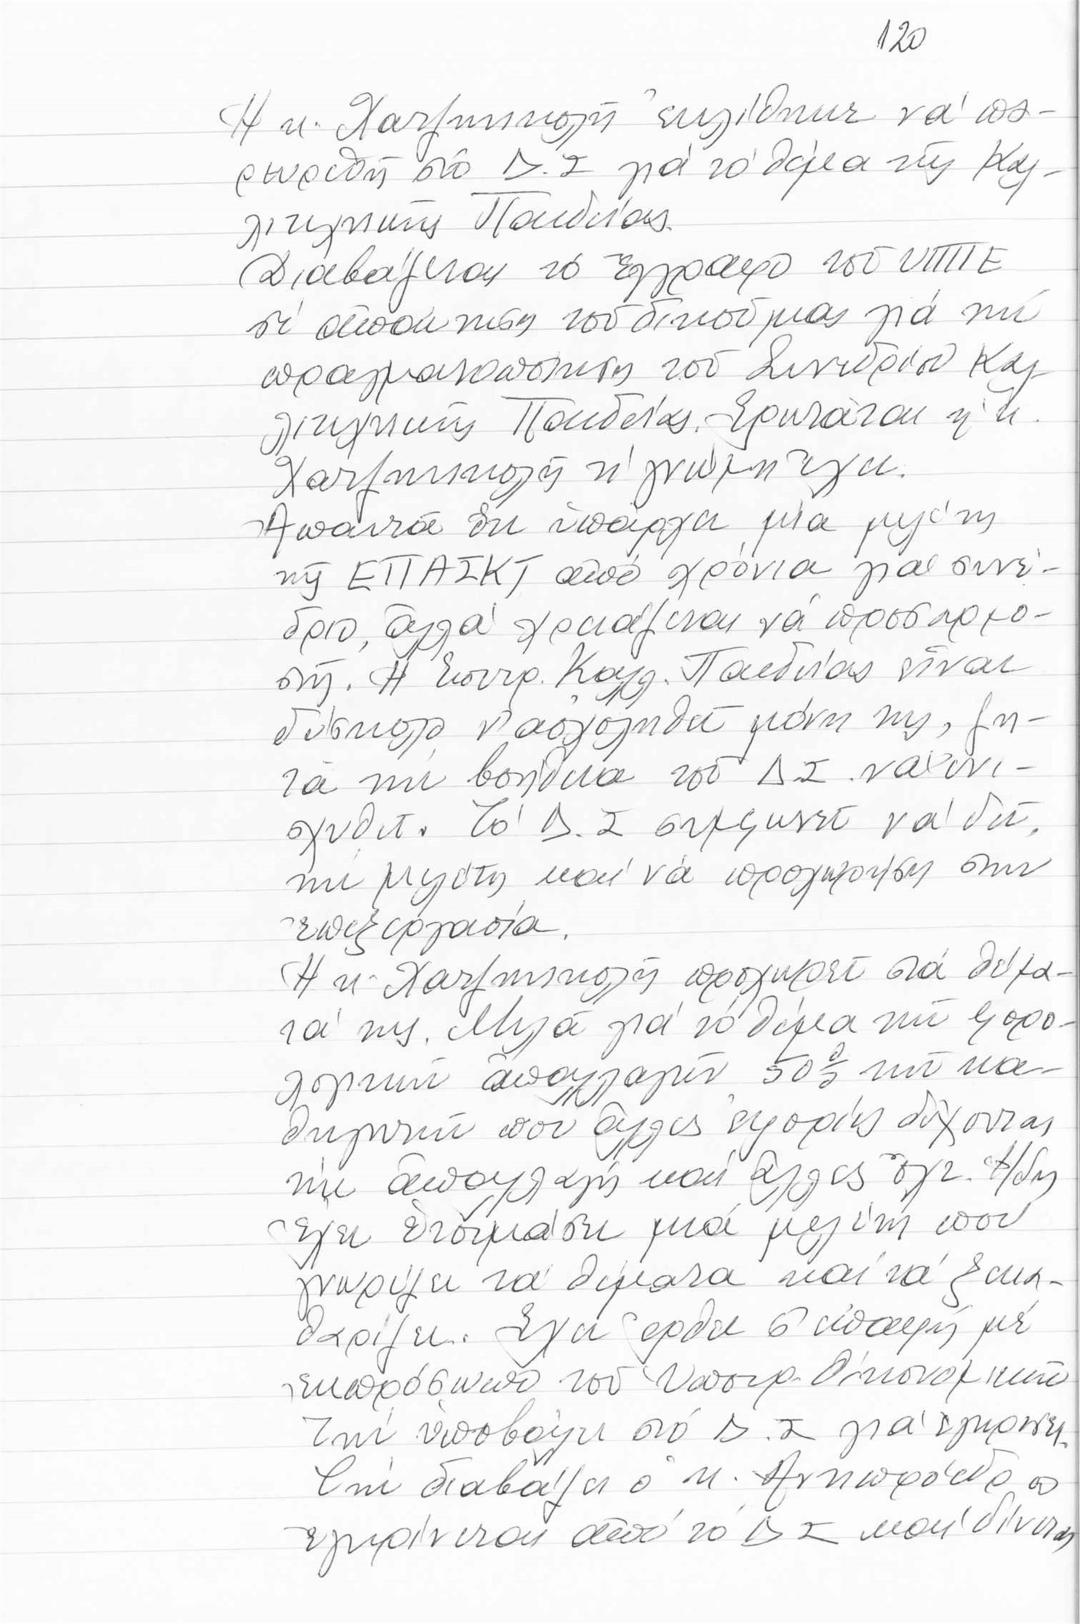 120
Ἡ κ. Χατζηνικολῆ ἐκλίθηκε νά πα-
ρευρεθῆ στό Δ.Σ γιά τό θέμα τῆς Καλ-
λιτεχνικῆς Παιδείας.
Διαβάζεται τό ἔγγραφο τοῦ ΥΠΠΕ
σέ ἀπάντηση τοῦ δικοῦ μας γιά τήν
πραγματοποίηση τοῦ Συνεδρίου Καλ-
λιτεχνικῆς Παιδείας. Ἐρωτᾶται ἡ κ.
Χατζηνικολῆ τί γνώμη ἔχει.
Ἀπαντᾶ ὅτι ὑπάρχει μία μελέτη
τῆς ΕΠΑΣΚΤ ἀπό χρόνια γιά συνέ-
δριο, ἀλλά χρειάζεται νά προσαρμο-
στῆ. Ἡ Ἐπιτρ. Καλλ. Παιδείας εἶναι
δύσκολο ν' ἀσχοληθεῖ μόνη της, ζη-
τᾶ τήν βοήθεια τοῦ Δ Σ. νά ἐνι-
σχυθεῖ. Τό Δ.Σ συμφωνεῖ νά δεῖ,
τήν μελέτη καί νά προχωρήση στήν
ἐπεξεργασία.
Ἡ κ. Χατζηνικολῆ προχωρεῖ στά θέμα-
τά της. Μιλᾶ γιά τό θέμα τῶν φορο-
λογικῶν ἀπαλλαγῶν 50% τῶν κα-
θηγητῶν που ἄλλες ἐφορίες δέχονται
τήν ἀπαλλαγή καί ἄλλες ὄχι. Ἤδη
ἔχει ἑτοιμάσει μιά μελέτη πού
γνωρίζει τά θέματα καί τά ξεκα-
θαρίζει. Ἔχει ἔρθει σ' ἐπαφή μέ
ἐκπρόσωπο τοῦ Ὑπουρ. Οἰκονομικῶν
Τήν ὑποβάλει στό Δ.Σ γιά ἔγκριση.
Τήν διαβάζει ὁ κ. Ἀντιπρόεδρο
ἐγκρίνεται ἀπό τό Δ Σ καί δίνεται